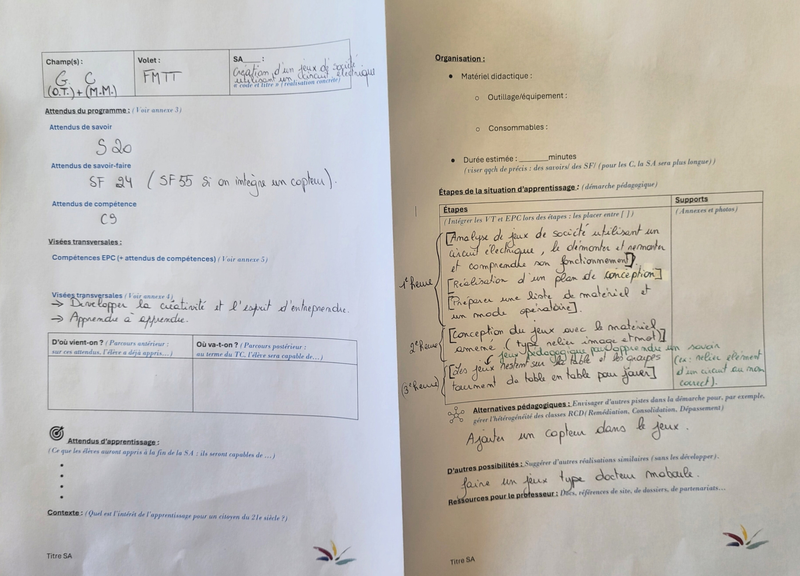 Champ(s) :
G C
(O.T.) + (M.M.)
Volet :
FMTT
SA____ :
Création d'un jeux de société
utilisant un circuit électrique
« code et titre » (réalisation concrète)
Attendus du programme : (Voir annexe 3)
Attendus de savoir
S 20
Attendus de savoir-faire
SF 24 (SF 55 si on intègre un capteur).
Attendus de compétence
C9
Visées transversales :
Compétences EPC (+ attendus de compétences) (Voir annexe 5)
Visées transversales (Voir annexe 4)
→ Développer la créativité et l'esprit d'entreprendre.
→ Apprendre à apprendre.
D'où vient-on ? (Parcours antérieur :
sur ces attendus, l'élève a déjà appris…)
Où va-t-on ? (Parcours postérieur :
au terme du TC, l'élève sera capable de…)
Attendus d'apprentissage :
(Ce que les élèves auront appris à la fin de la SA : ils seront capables de …)
•
•
•
•
Contexte : (Quel est l'intérêt de l'apprentissage pour un citoyen du 21e siècle ?)
Titre SA
Organisation :
• Matériel didactique :
o Outillage/équipement :
o Consommables :
• Durée estimée : ______minutes
(viser qqch de précis : des savoirs/ des SF/ (pour les C, la SA sera plus longue))
Étapes de la situation d'apprentissage : (démarche pédagogique)
Étapes
(Intégrer les VT et EPC lors des étapes : les placer entre [ ])
Supports
(Annexes et photos)
1e heure
[Analyse de jeux de société utilisant un
circuit électrique, le démonter et remonter
et comprendre son fonctionnement]
[Réalisation d'un plan de conception]
[Préparer une liste de matériel et
un mode opératoire]
2e heure
[conception du jeux avec le matériel
amené (type relier image et mot)]
↳ jeux pédagogique pour apprendre un savoir
(ex : relier élément
d'un circuit au nom
correct).
(3e heure)
[Les jeux restent sur la table et les groupes
tournent de table en table pour jouer]
Alternatives pédagogiques : Envisager d'autres pistes dans la démarche pour, par exemple,
gérer l'hétérogénéité des classes RCD( Remédiation, Consolidation, Dépassement)
Ajouter un capteur dans le jeux.
D'autres possibilités : Suggérer d'autres réalisations similaires (sans les développer).
faire un jeux type docteur maboule.
Ressources pour le professeur : Docs, références de site, de dossiers, de partenariats…
Titre SA